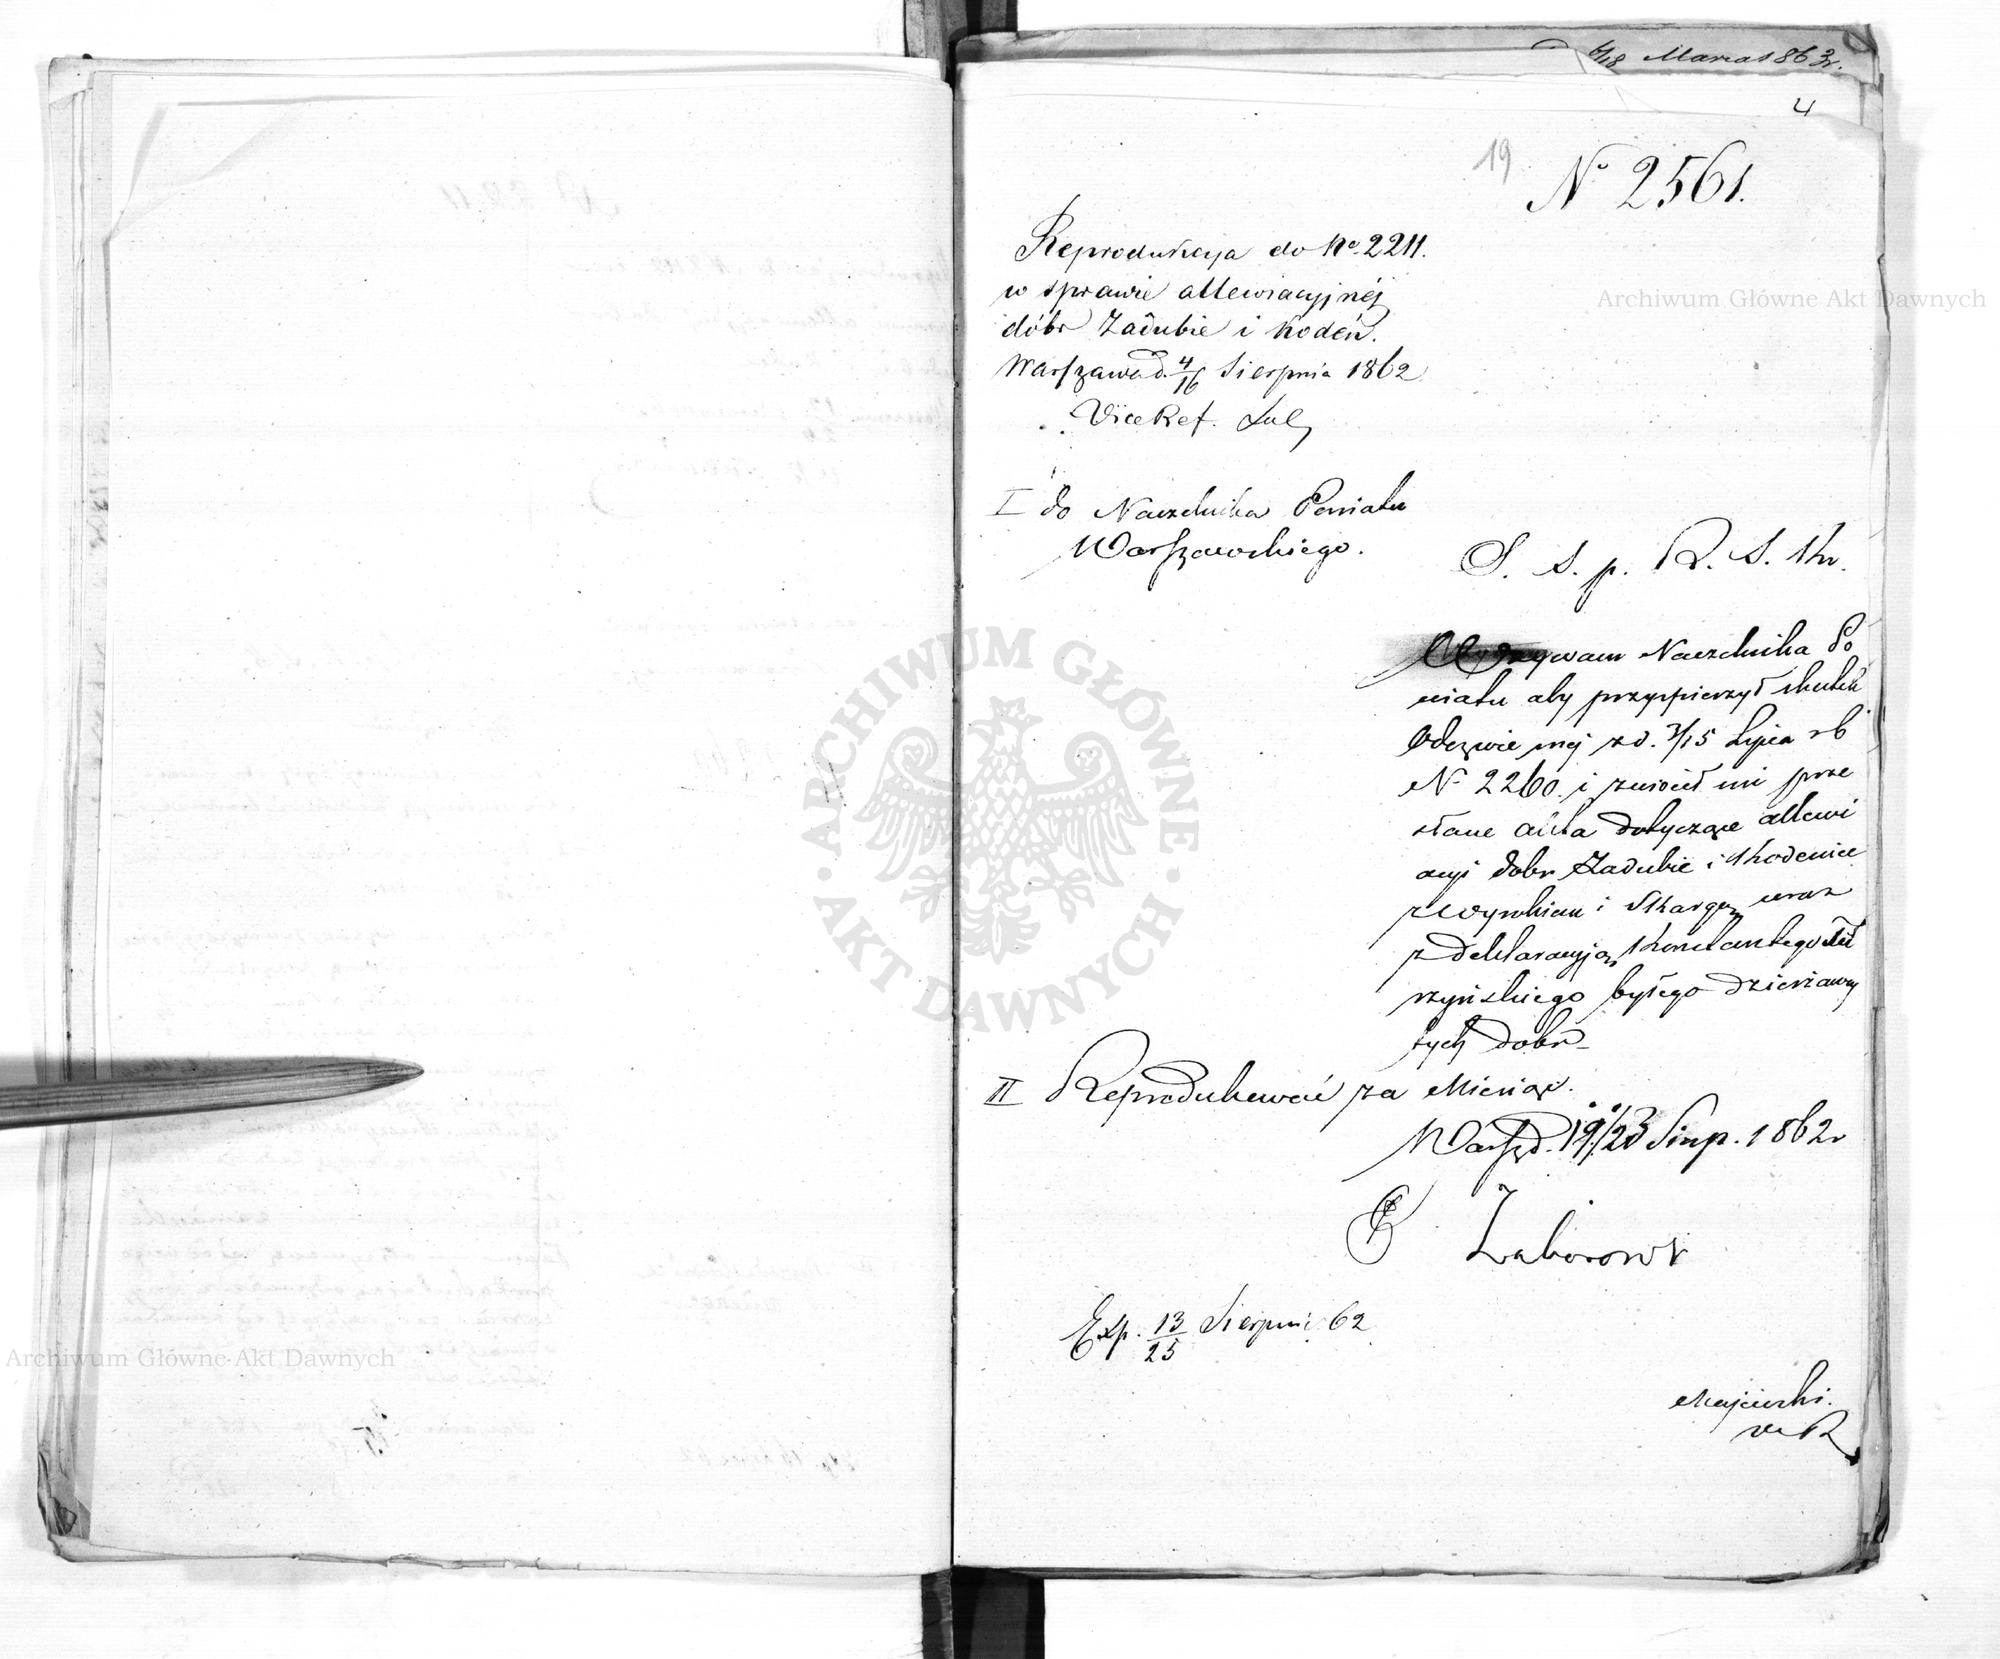 6/18 Marca 1863r.
4
19
No 2561.
Reprodukcya do No 2211.
w sprawie allewiacyjnéj
dóbr Zadubie i Kodeń.
Warszawa d. 4/16 Sierpnia 1862
Vice Ref.
I do Naczelnika Powiatu
Warszawskiego.
S. S. p. R. S. Kr.
Wzywam Naczelnika Po
wiatu aby przyspieszył skutek
Odezwie mej z d. 3/15 Lipca rb
N 2260. i zwrócił mi prze
słane akta dotyczące allewi
acyi dobr Zadubie i Kodenice
z Wyrokiem i Skargą wraz
z deklaracyją Konstantego
rzyńskiego byłego dzierżawcy
tych dobr
II Reprodukować za Miesiąc.
Warsz d. 11/23 Sierp. 1862r
Zaborows
Exp. 13/25 Sierpnia 62
Majewski.
VR
Archiwum Główne Akt Dawnych
Archiwum Główne Akt Dawnych
ARCHIWUM GŁÓWNE AKT DAWNYCH